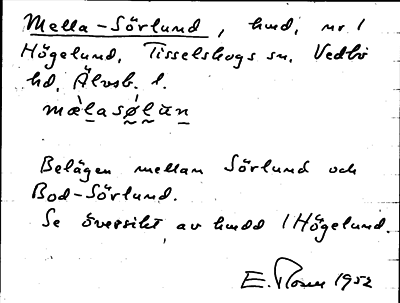 Mella-Sörlund, hmd, nr 1
Högelund, Tisselskogs sn. Vedbo
hd, Älvsb. l.
mæ̀lasø̀lu̇n
Belägen mellan Sörlund och
Bod-Sörlund.
Se översikt av hmdd / Högelund.
E. 1952